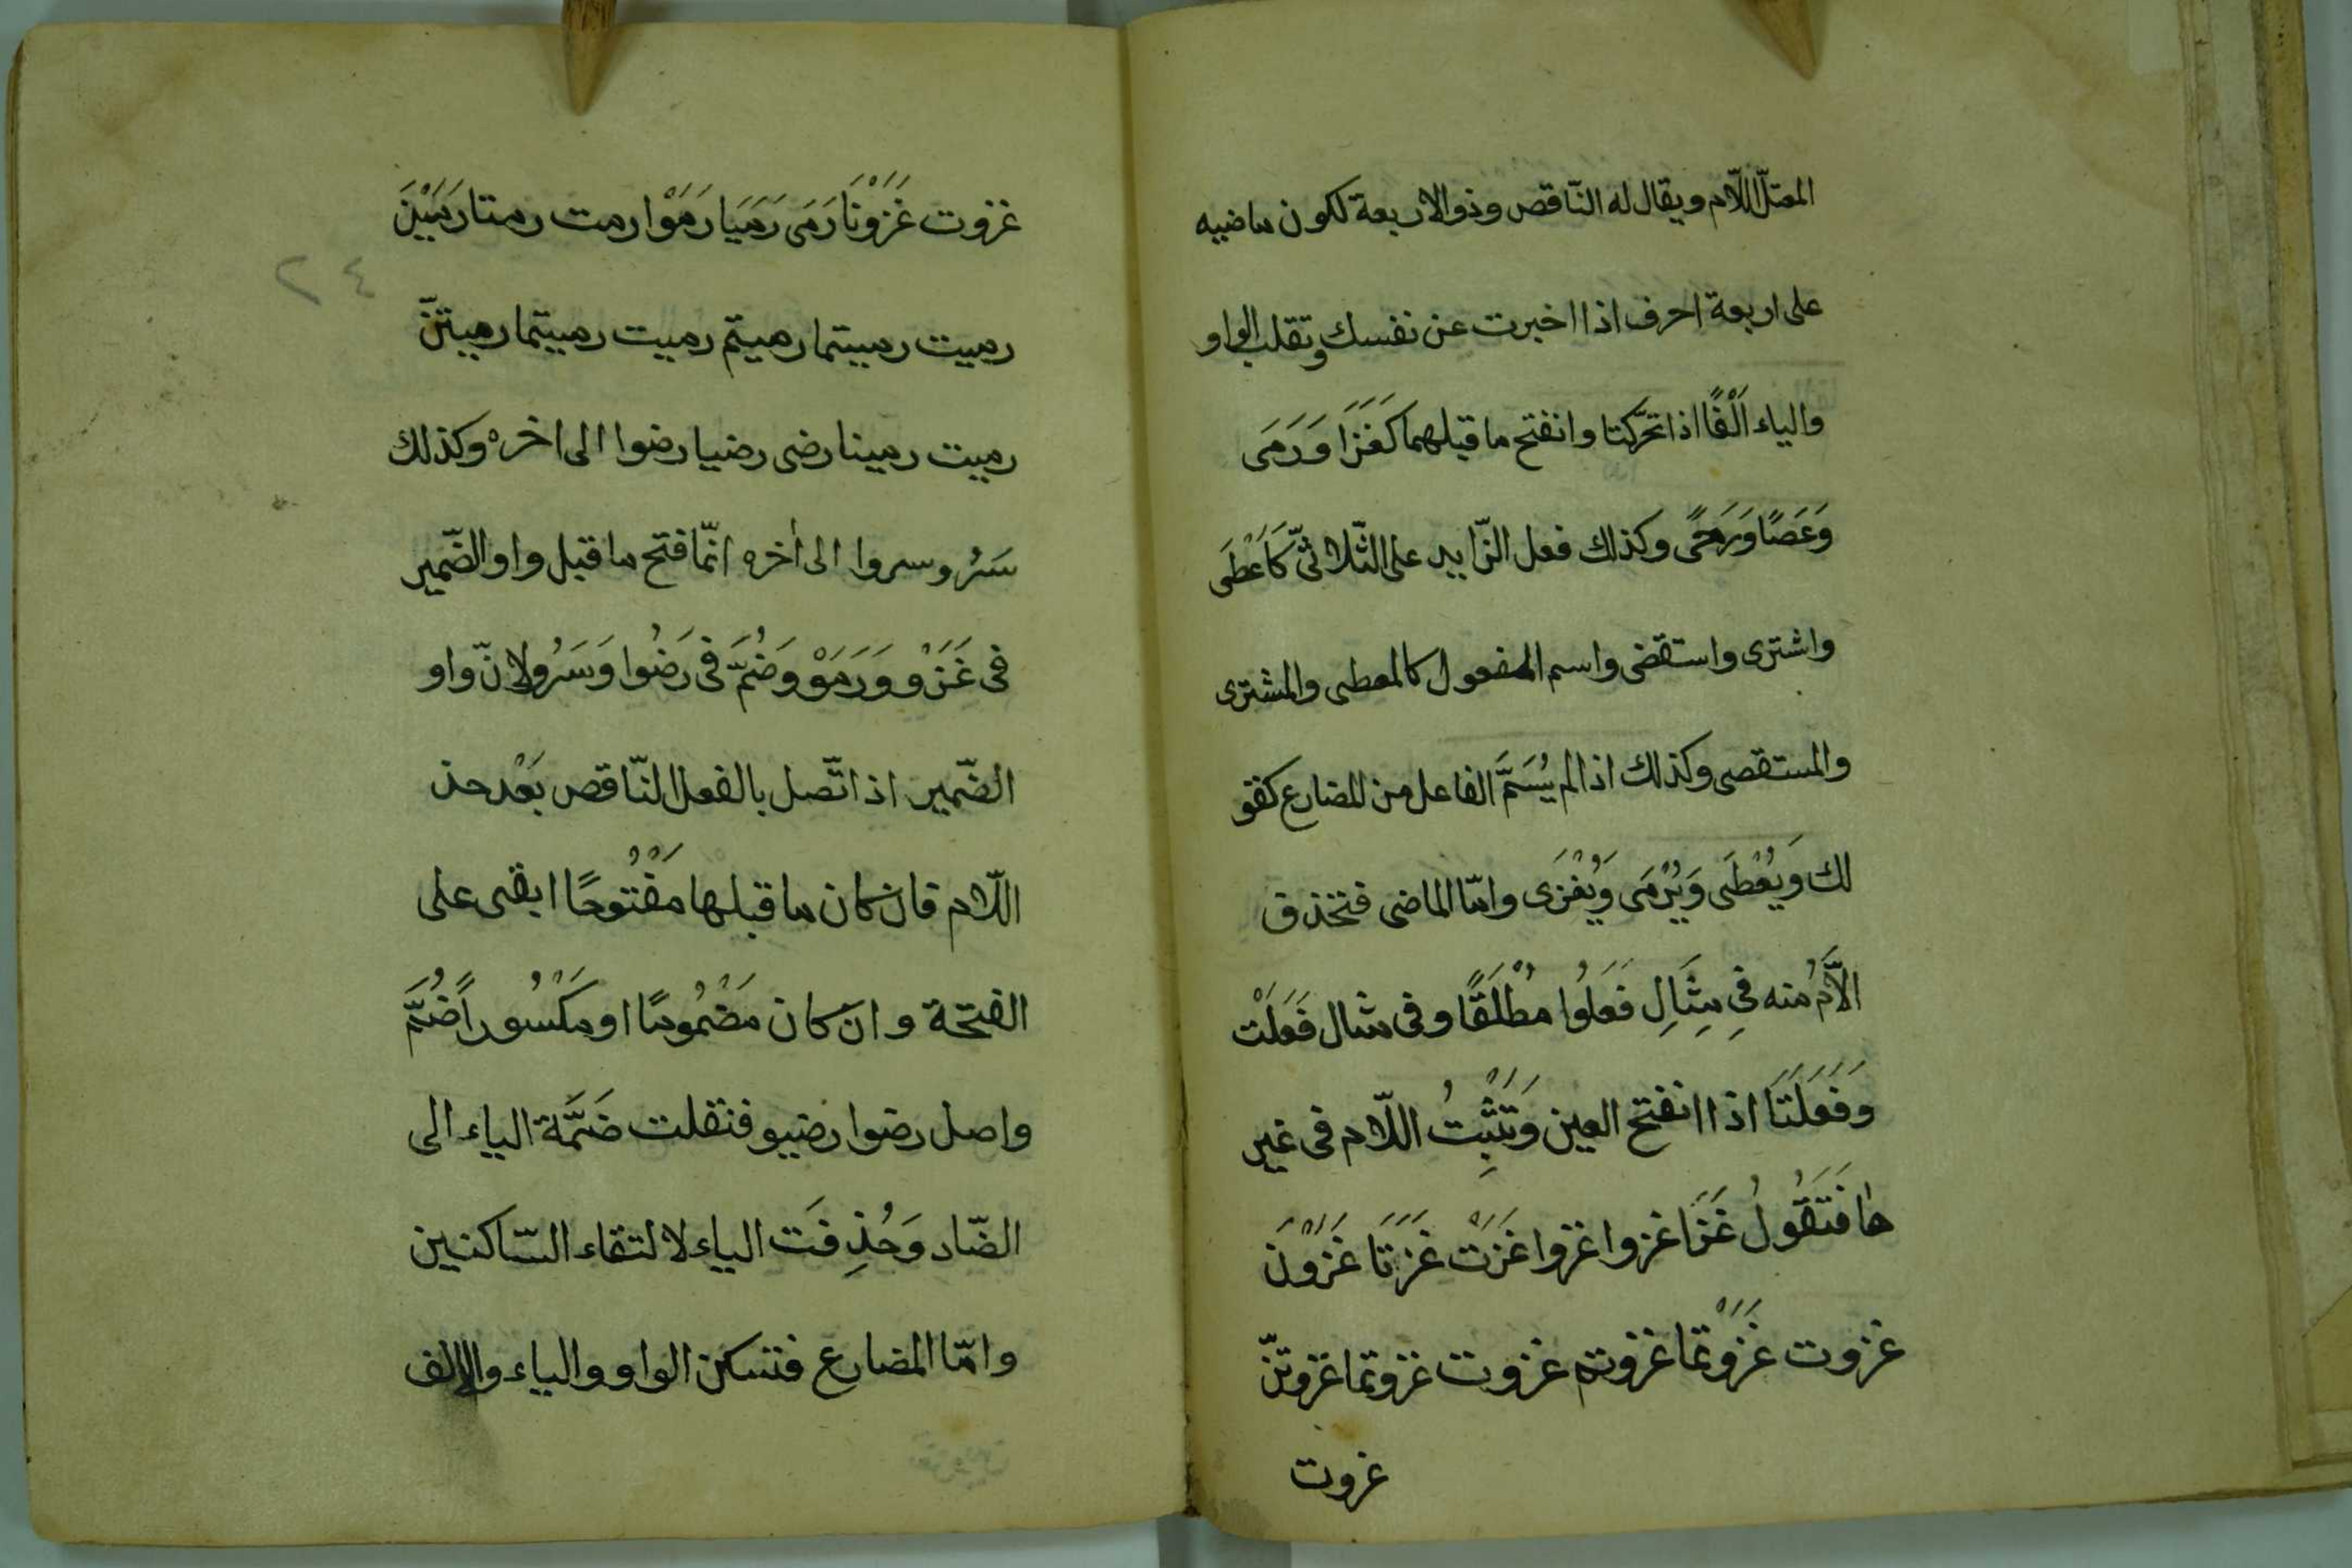 المعتلّ اللّام ويقال له النّاقص وذو الاربعة لكون ماضيه
على اربعة احرف اذا اخبرت عن نفسك وتقلب الواو
والياء اَلْفًا اذا تحرّكتا وانفتح ما قبلهما كَغَزَا وَرَمَى
وَعَصًا وَرَحًى وكذلك فعل الزّايد على الثّلاثىّ كَاَعْطَى
واشترى واستقضى واسم المفعول كالمعطى والمشترى
والمستقصى وكذلك اذا لم يُسَمَّ الفاعل من المضارع كقو
لك وَيُعْطَى وَيُرْمَى وَيُغْزَى وامّا الماضى فتحذف
الاَّمُ منه فِي مِثَالِ فَعَلُوا مُطْلَقًا وفى مثال فَعَلَتْ
وَفَعَلَتَا اذا انفتح العين وَتَثْبِتُ اللّام فى غير
ها فَتَقُولُ غَزَا غزوا غزوا غَزَتْ غَزَتَا غَزَوْنَ
غزوت غَزَوْتما غزوتم غزوت غزوتما غزوتنّ
غزوت
غزوت غَزَوْنَا رَمَى رَمَيَا رَمَوْا رمت رمتا رَمَيْنَ
٢٤
رميت رميتما رميتم رميت رميتما رميتنّ
رميت رمينا رضى رضيا رضوا الى اخره وكذلك
سَرُو سروا الى أخره انّما فتح ما قبل واو الضّمير
فى غَزَوْ وَرَمَوْ وَضُمّ فى رَضُوا وَسَرُو لانّ واو
الضّمير اذا اتّصل بالفعل النّاقص بَعْد حذ
اللّام فان كان ما قبلها مَفْتُوحًا ابقى على
الفتحة وان كان مَضْمُومًا او مَكْسُوراً ضُمَّ
واصل رضوا رضيو فنقلت ضَمَّة الياء الى
الضّاد وَحُذِفَت الياء لالتقاء السّاكنين
وامّا المضارع فتسكن الواو والياء والالف